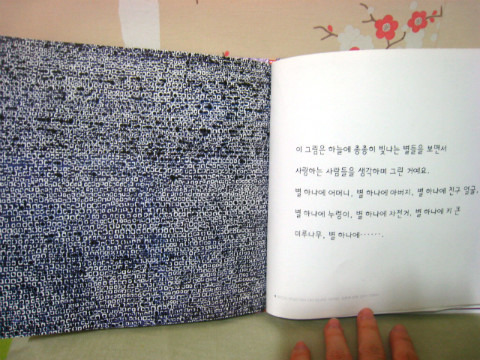 이 그림은 하늘에 총총히 빛나는 별들을 보면서
사랑하는 사람들을 생각하며 그린 거예요.
별 하나에 어머니, 별 하나에 아버지, 별 하나에 친구 얼굴,
별 하나에 누렁이, 별 하나에 자전거, 별 하나에 키 큰
미루나무, 별 하나에…….